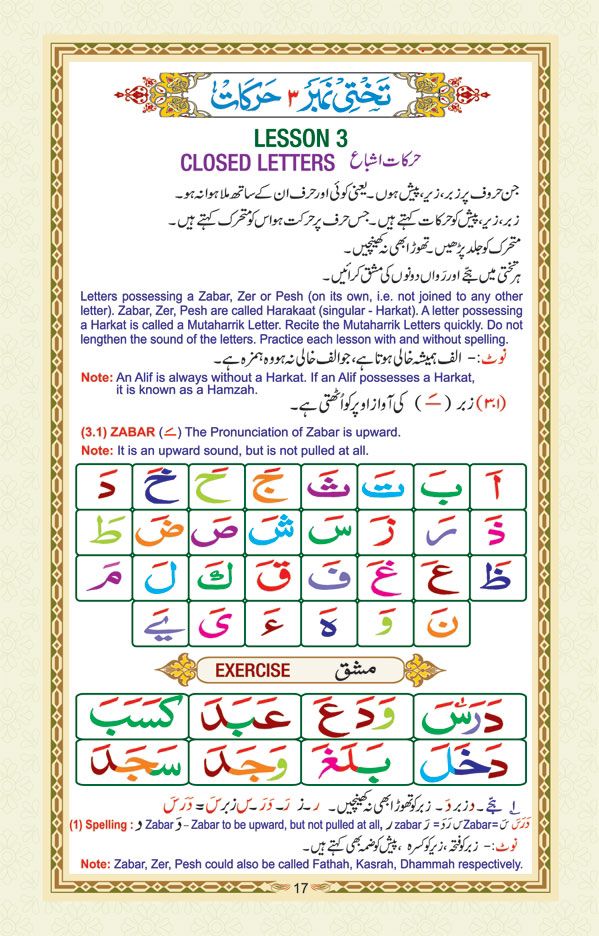 تختی نمبر ۳ حرکات
LESSON 3
CLOSED LETTERS حرکات اشباع
جن حروف پر زبر، زیر، پیش ہوں۔ یعنی کوئی اور حرف ان کے ساتھ ملا ہوا نہ ہو۔
زبر، زیر، پیش کو حرکات کہتے ہیں۔ جس حرف پر حرکت ہو اس کو متحرک کہتے ہیں۔
متحرک کو جلد پڑھیں۔ تھوڑا بھی نہ کھینچیں۔
ہر تختی میں ہجے اور رواں دونوں کی مشق کرائیں۔
Letters possessing a Zabar, Zer or Pesh (on its own, i.e. not joined to any other
letter). Zabar, Zer, Pesh are called Harakaat (singular - Harkat). A letter possessing
a Harkat is called a Mutaharrik Letter. Recite the Mutaharrik Letters quickly. Do not
lengthen the sound of the letters. Practice each lesson with and without spelling.
نوٹ:- الف ہمیشہ خالی ہوتا ہے، جو الف خالی نہ ہو وہ ہمزہ ہے۔
Note: An Alif is always without a Harkat. If an Alif possesses a Harkat,
it is known as a Hamzah.
(۳.۱) زبر (ـَـ) کی آواز اوپر کو اُٹھتی ہے۔
(3.1) ZABAR (ـَـ) The Pronunciation of Zabar is upward.
Note: It is an upward sound, but is not pulled at all.
اَ بَ تَ ثَ جَ حَ خَ دَ
ذَ رَ زَ سَ شَ صَ ضَ طَ
ظَ عَ غَ فَ قَ كَ لَ مَ
نَ وَ هَ ءَ یَ یَے
EXERCISE مشق
دَرَسَ وَدَعَ عَبَدَ كَسَبَ
دَخَلَ بَلَغَ وَجَدَ سَجَدَ
۱؎ ہجے۔ د زبر دَ۔ زبر کو تھوڑا بھی نہ کھینچیں۔ ر۔ ز رَ۔ دَرَ۔ س زبر سَ = دَرَسَ
(1) Spelling : و Zabar وَ – Zabar to be upward, but not pulled at all, ر zabar رَ = دَرَ س Zabar= سَ دَرَسَ
نوٹ:- زبر کو فتحہ، زیر کو کسرہ، پیش کو ضمہ بھی کہتے ہیں۔
Note: Zabar, Zer, Pesh could also be called Fathah, Kasrah, Dhammah respectively.
17